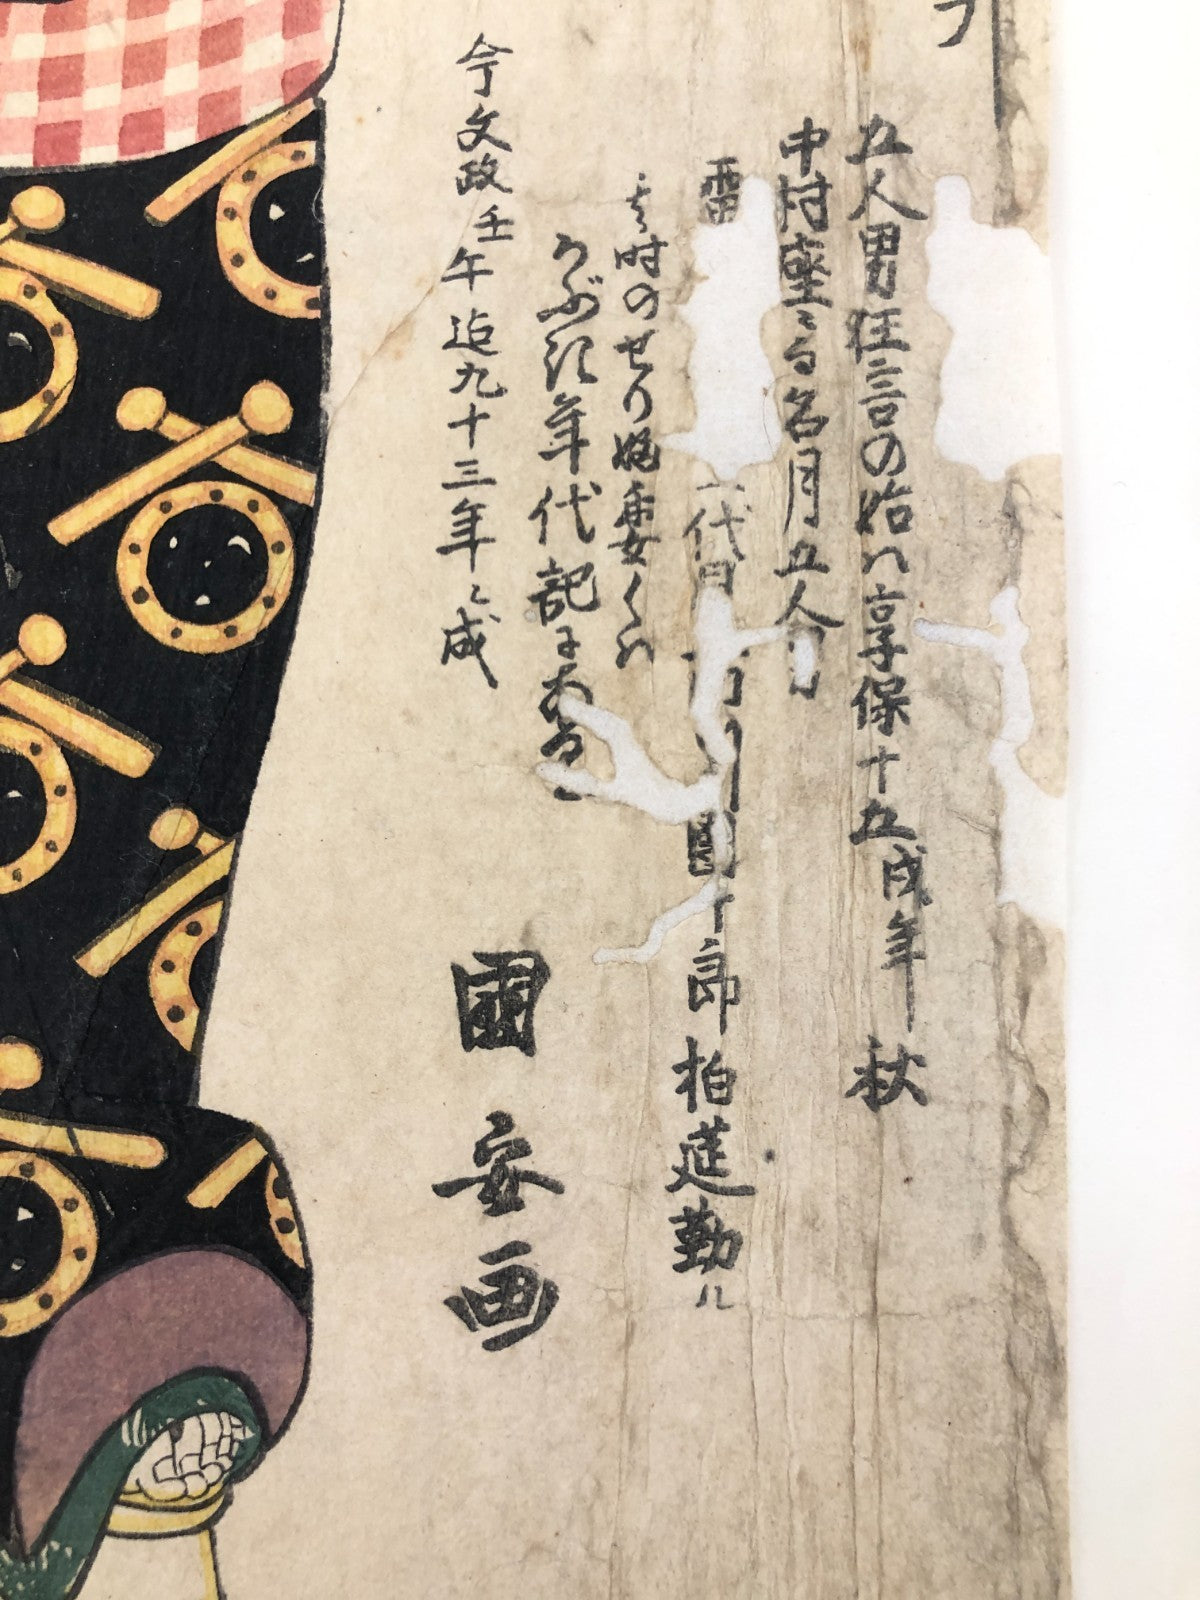 五人男狂言の始ハ享保十五戌年 秋
中村座ニる名月五人
雷 代目 團十郎 柏莚勤ル
其時のせりふ 委くハ
かぶき年代記にある
今文政壬午迄九十三年ニ成
國安画